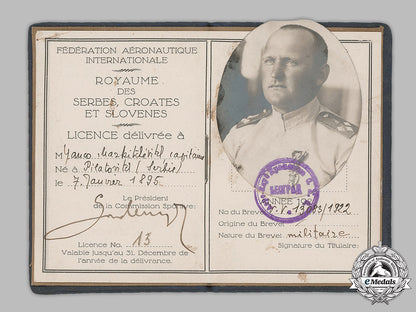 FÉDÉRATION AÉRONAUTIQUE
INTERNATIONALE
ROYAUME
DES
SERBES, CROATES
ET SLOVENES
LICENCE délivrée à
M Yanco capitaine
Né à
le 7. Janvier 1895
Le Président
de la Commission Sportive:
Licence No. 13
Valable jusqu'au 31. Décembre de
l'année de la délivrance.
БЕОГРАД
No du Brevet
Origine du Brevet
Nature du Brevet militaire
Signature du Titulaire:
eMedals